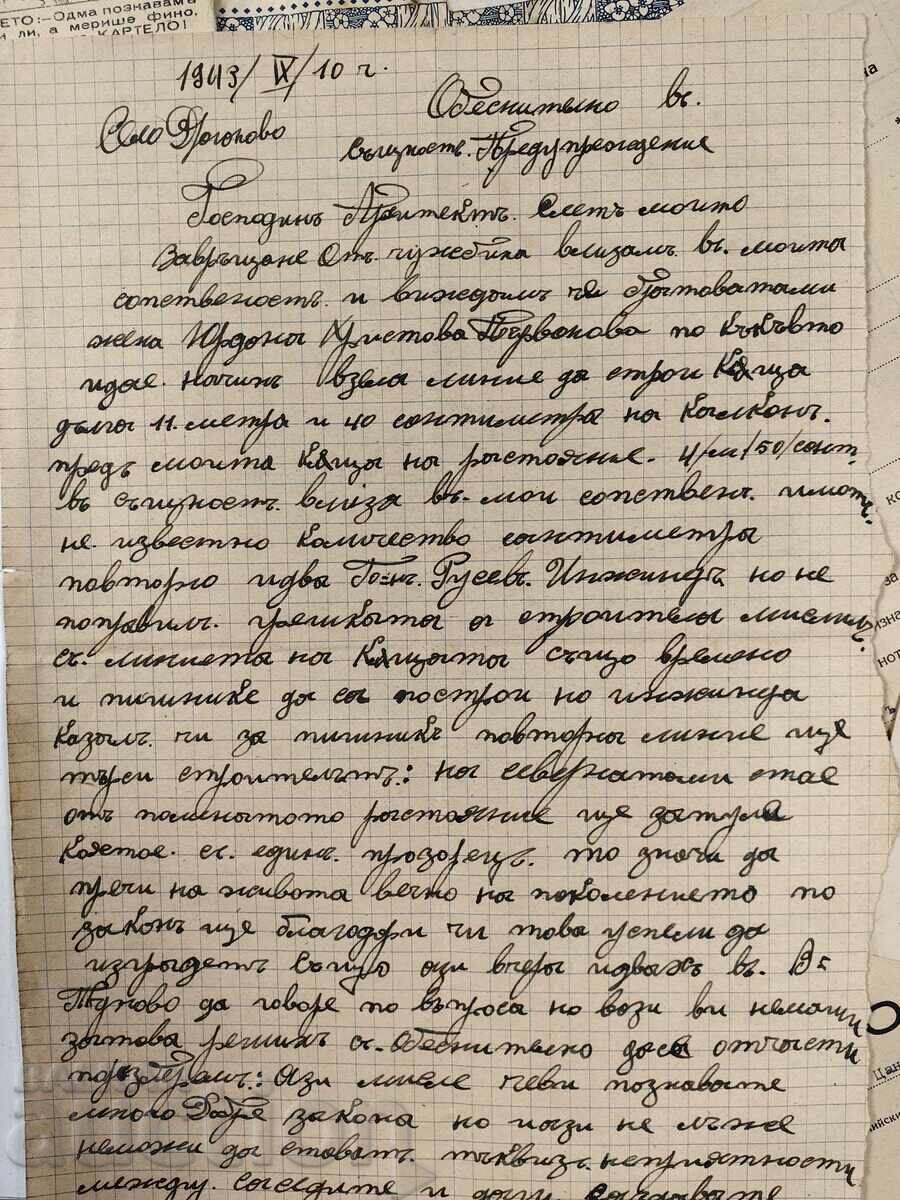 ЕТО:—Одма познавамъ
и ли, а мерише фино.
КАРТЕЛО!
1943/IX/10 ч.
Обеснително въ.
Село
същность. Предупреждение
Господинъ Архитектъ. Следъ моито
завръщане отъ. чужбина влизамъ. въ. моита
сопственость. и виждамъ че братоватами
жена Юрдона Христова Първанова по какъвто
идае. начинъ взела линие да строи Каща
дълга 11. метра и 40 сантиметра на калканъ.
предъ моита Каща на растояние. 4/м/50/сант.
въ същность. влиза въ. мои сопствен. имотъ.
не. известно количество сантиметра
повторно идва Го=нъ. Русевъ. Инжинеръ но не
поправилъ. грешката а строителя мисли
съ. линиета на Къщата също времено
и пишнике да са построи но инжинера
казалъ. чи за пишникъ повторна линие ще
търси строительтъ: на севернатами стае
отъ поменатото растояние ще затули
коятое. съ. единъ. прозорецъ. то значи да
пречи на живота вечно на поколението по
законъ ще благодари чи това успели да
изградетъ също ази вчера идвахъ въ. В=
Търново да говоре по въпроса но вази ви немаши
затова решихъ съ. обеснително дасе отчасти
празберамъ: Ази мисле чеви познавате
много Добре закона но и ази не лъже
неможи да ставатъ. такивизъ. неприятности
между. соседите и
на
ко
за
изна
нот
ъ
Цан
ийски